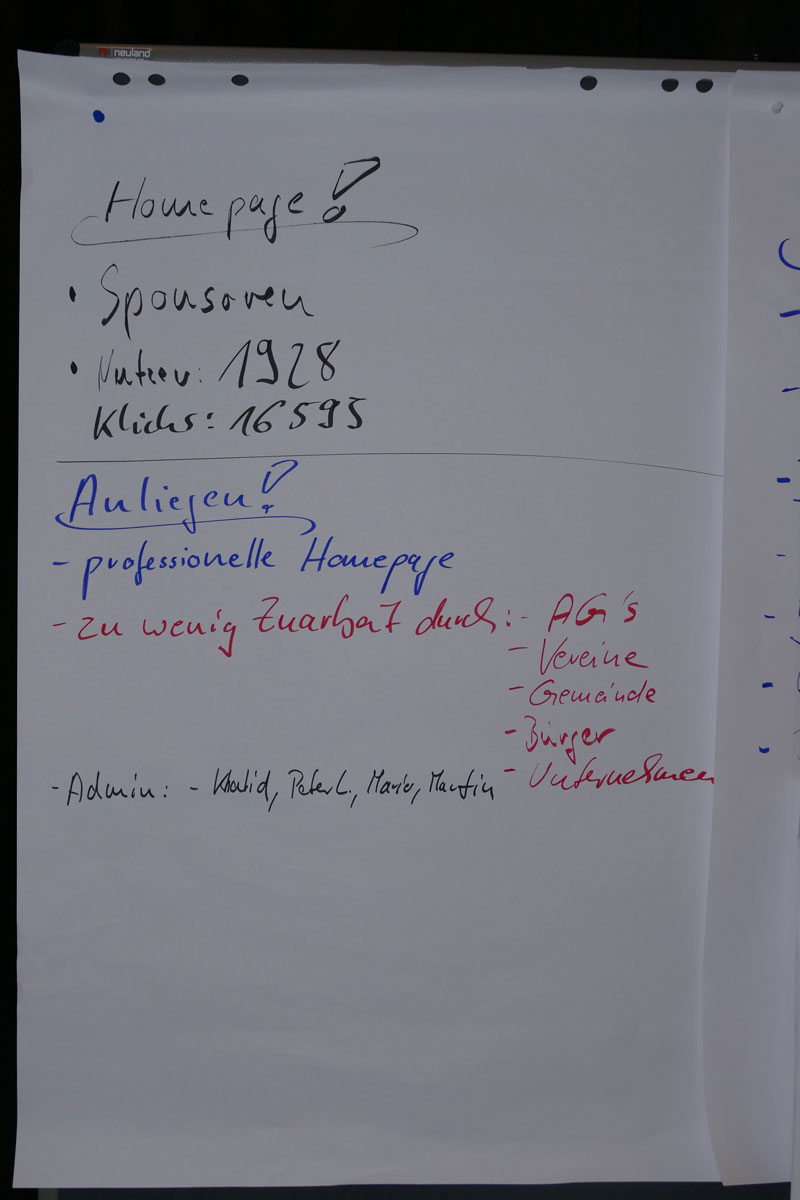 neuland
Homepage!
• Sponsoren
• Nutzer: 1928
Klicks: 16595
Anliegen!
- professionelle Homepage
- zu wenig Zuarbeit durch: - AG's
- Vereine
- Gemeinde
- Bürger
- Unternehmen
- Admin: - Khalid, Peter L., Mario, Martin